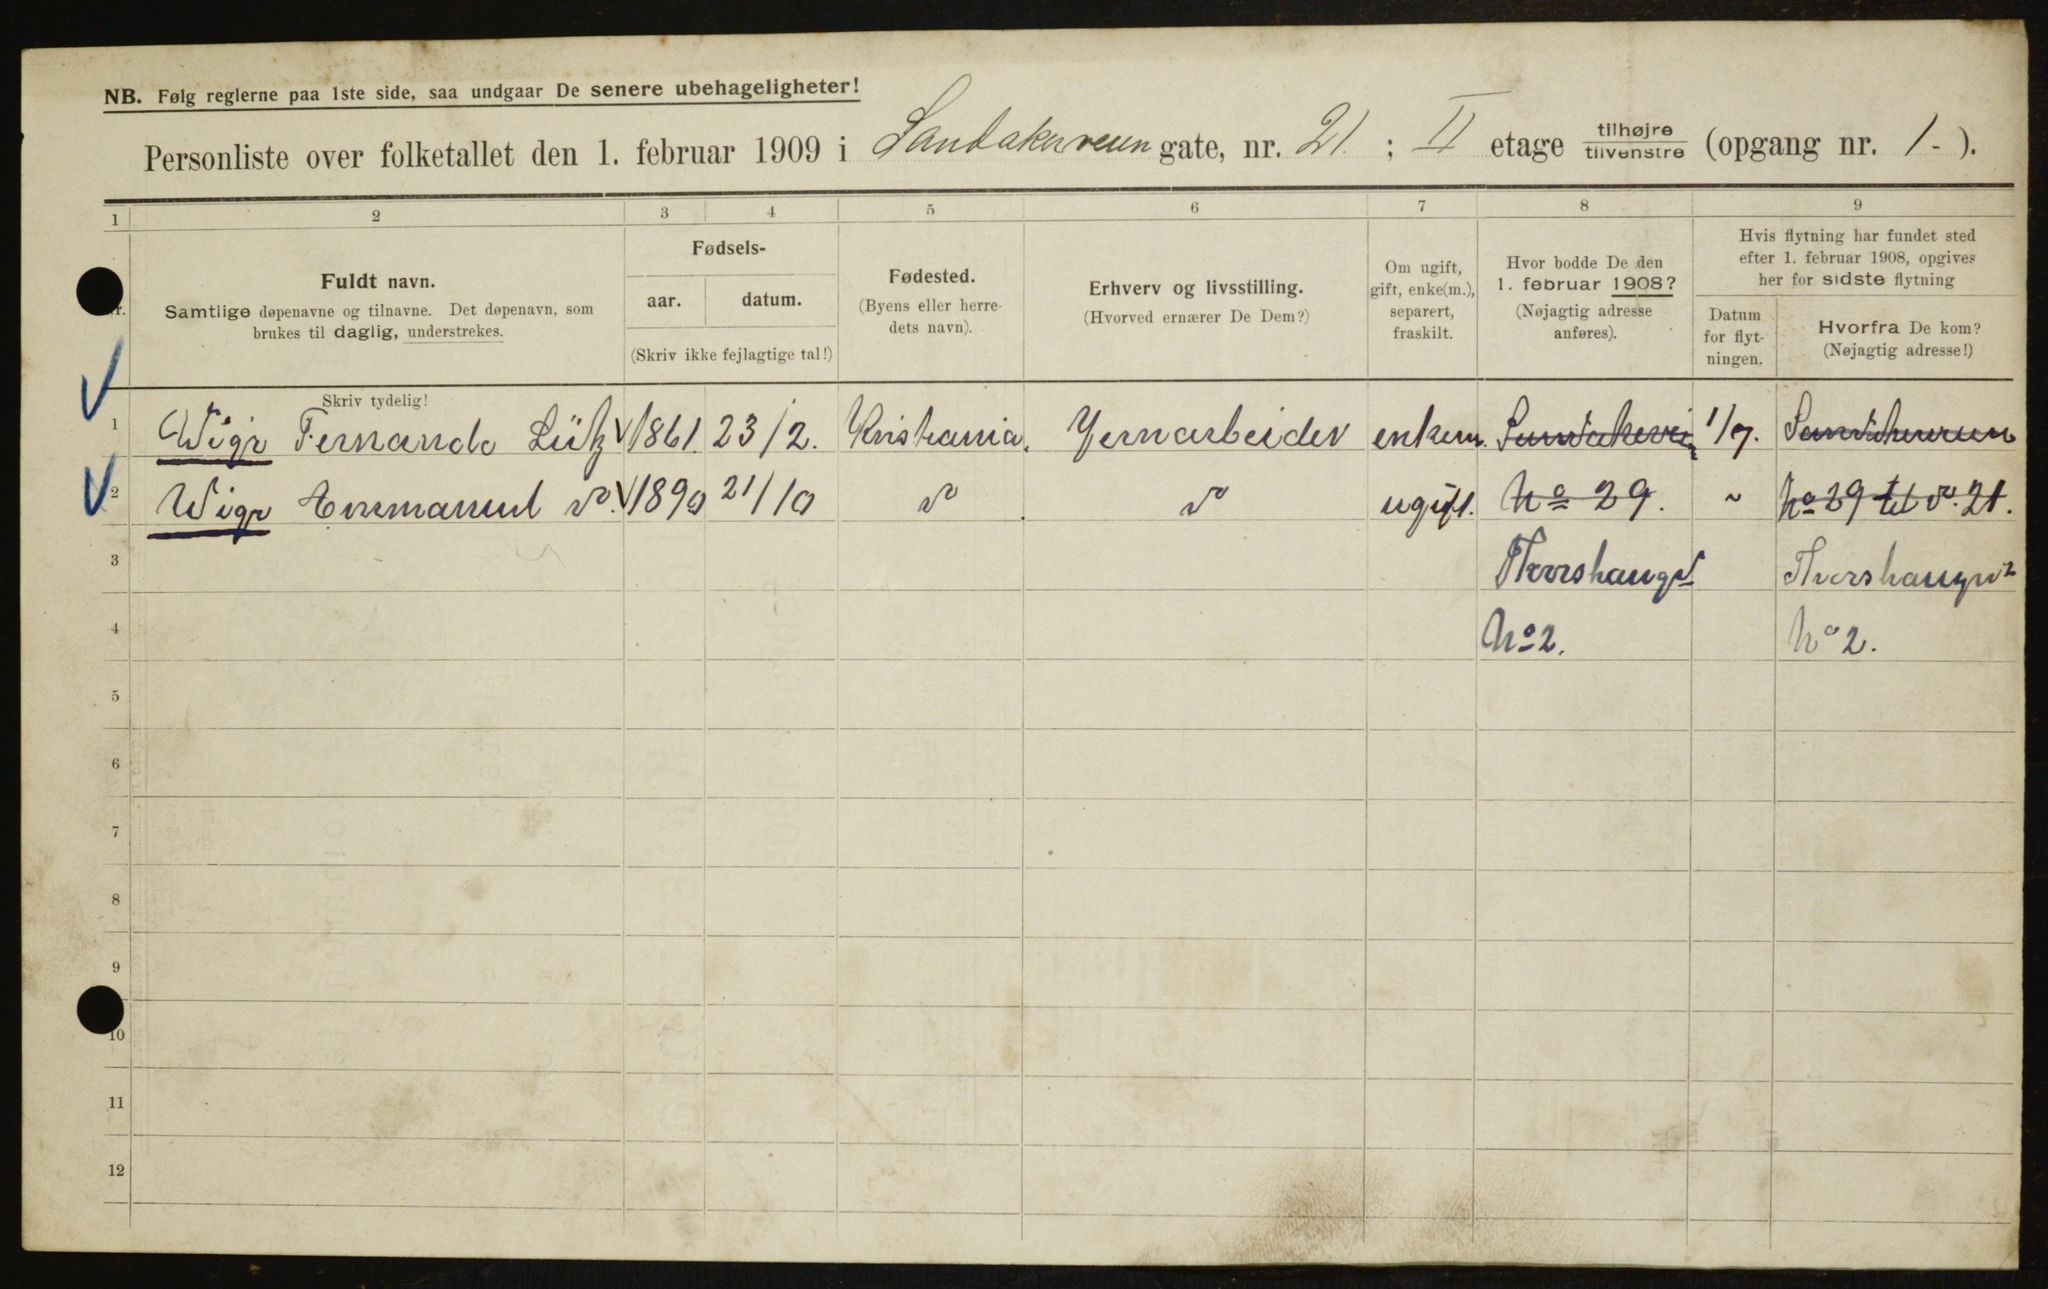 NB. Følg reglerne paa 1ste side, saa undgaar De senere ubehageligheter!
Personliste over folketallet den 1. februar 1909 i Sandakerveien gate, nr. 21. ; II etage tilhøjre tilvenstre (opgang nr. 1.- ).
1 2 3 4 5 6 7 8 9
Nr.
Fuldt navn.
Samtlige døpenavne og tilnavne. Det døpenavn, som
brukes til daglig, understrekes.
Skriv tydelig!
Fødsels-
aar. datum.
(Skriv ikke fejlagtige tal!)
Fødested.
(Byens eller herre-
dets navn).
Erhverv og livsstilling.
(Hvorved ernærer De Dem?)
Om ugift,
gift, enke(m.),
separert,
fraskilt.
Hvor bodde De den
1. februar 1908?
(Nøjagtig adresse
anføres).
Hvis flytning har fundet sted
efter 1. februar 1908, opgives
her for sidste flytning
Datum
for flyt-
ningen.
Hvorfra De kom?
(Nøjagtig adresse!)
1 Wigr Fernando Lütz 1861. 23/2. Kristiania. Jernarbeider enkem. Sandakervein 1/9. Sandakerveien
2 Wigr Emmanuel 1890 21/10 ugift. No 29. No 29 til No. 21.
3 Thorshaugv No 2.
4 No 2.
5
6
7
8
9
10
11
12